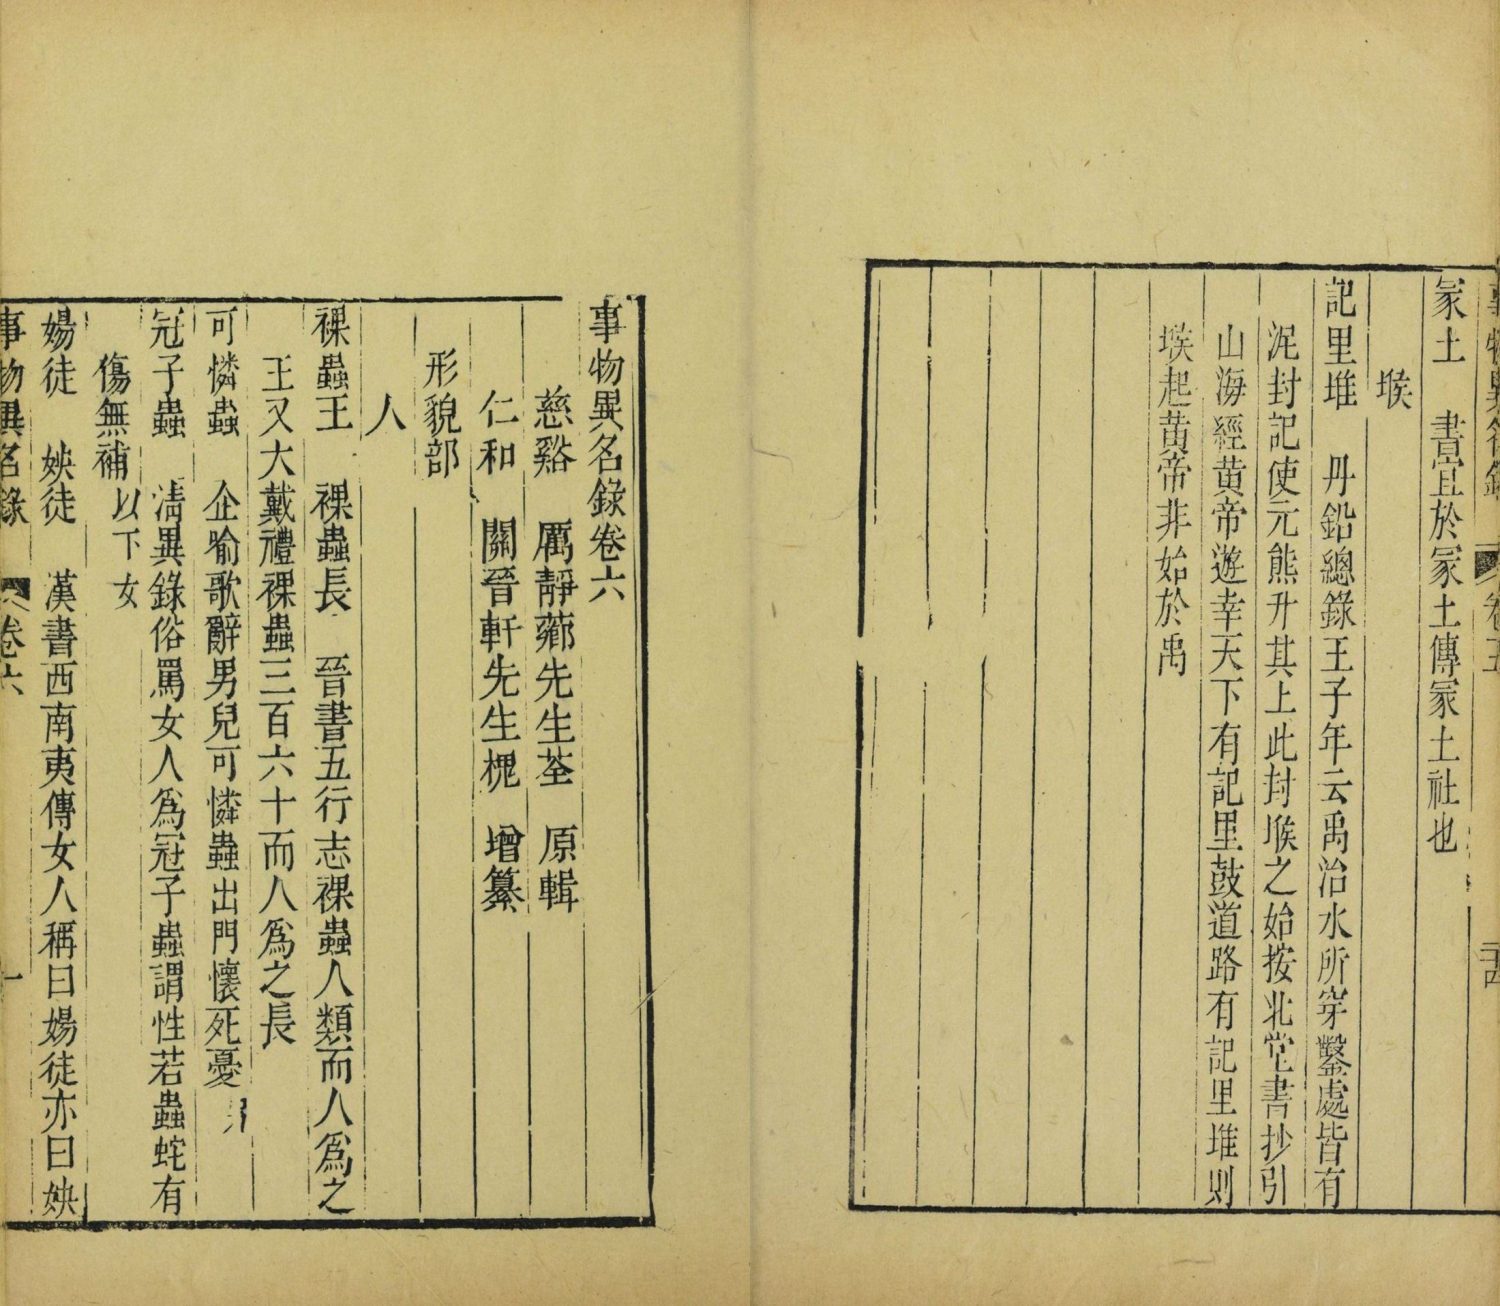 事物異名錄 卷五 二十四
冡土 書宜於冡土傳冡土社也
堠
記里堆 丹鉛總錄王子年云禹治水所穿鑿處皆有
泥封記使元熊升其上此封堠之始按北堂書抄引
山海經黄帝遊幸天下有記里鼓道路有記里堆則
堠起黄帝非始於禹
事物異名錄卷六
慈谿 厲靜薌先生荃 原輯
仁和 關晉軒先生槐 增纂
形貌部
人
裸蟲王 裸蟲長 晉書五行志裸蟲人類而人爲之
王又大戴禮裸蟲三百六十而人爲之長
可憐蟲 企喻歌辭男兒可憐蟲出門懷死憂 男
冠子蟲 清異錄俗罵女人爲冠子蟲謂性若蟲蛇有
傷無補 以下女
婸徒 姎徒 漢書西南夷傳女人稱曰婸徒亦曰姎
事物異名錄 卷六 一